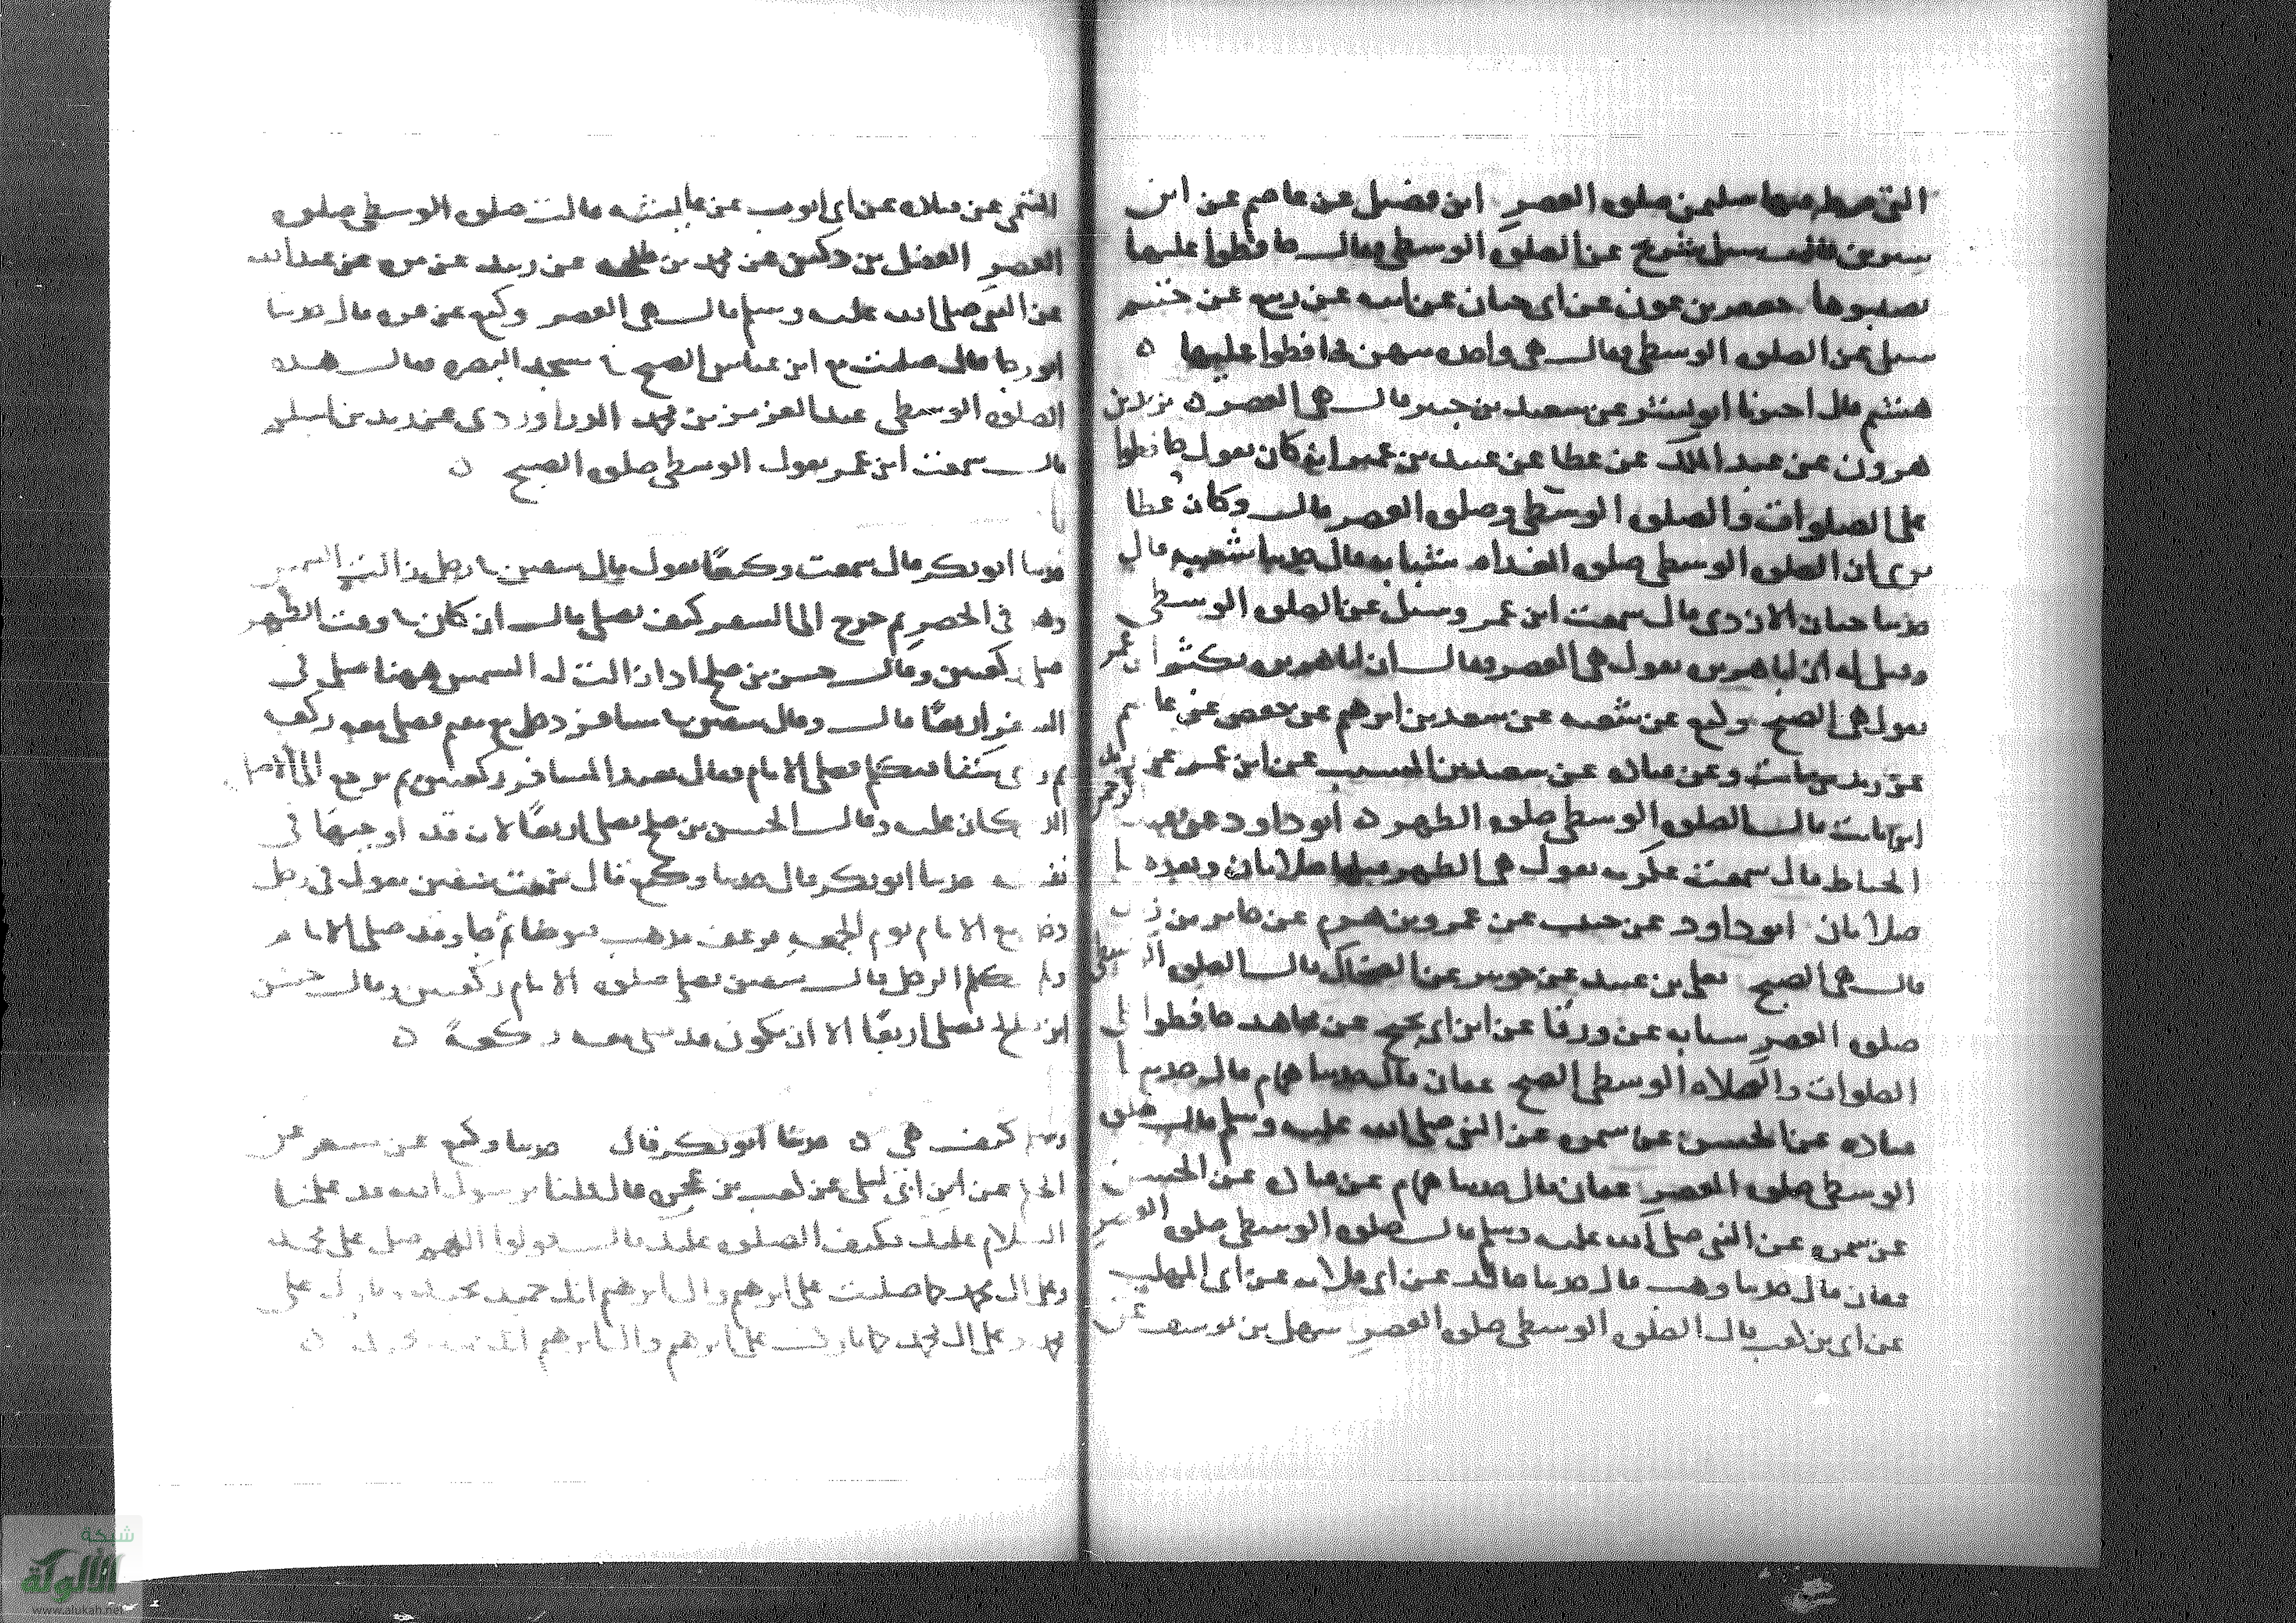 التي فرط فيها سليمن صلوه العصر ابن فضيل عن عاصم عن ابن
سيرين قال سيل شريح عن الصلوه الوسطى فقال حافظوا عليها
تصيبوها جعفر بن عون عن ابي حيان عن ابيه عن ربيع عن خثيم
سيل عن الصلوه الوسطى فقال هي واحده منهن فحافظوا عليها ٥
هشيم قال اخبرنا ابو بشر عن سعيد بن جبير قال هي العصر ٥ يزيد بن
هرون عن عبد الملك عن عطا عن عبيد بن عمير انه كان يقول حافظوا
على الصلوات والصلوه الوسطى وصلوه العصر قال وكان عطا
يرى ان الصلوه الوسطى صلوه الغداه شبابه قال حدثنا شعبه قال
حدثنا حيان الازدي قال سمعت ابن عمر وسيل عن الصلوه الوسطى
وقيل له ان ابا هريره يقول هي العصر فقال ان ابا هريره يكثر ان عمر
يقول هي الصبح وكيع عن شعبه عن سعد بن ابرهيم عن حفص عن عاصم
عن زيد بن ثابت وعن قتاده عن سعيد بن المسيب عن ابن عمر عن
ابن ثابت قال الصلوه الوسطى صلوه الظهر ٥ ابو داود عن
الحناط قال سمعت عكرمه يقول هي الظهر قبلها صلاتان وبعدها
صلاتان ابو داود عن حبيب عن عمرو بن هرم عن جابر بن زيد
قال هي الصبح يعلى بن عبيد عن جويبر عن الضحاك قال الصلوه الوسطى
صلوه العصر شبابه عن ورقا عن ابن ابي نجيح عن مجاهد حافظوا على
الصلوات والصلاه الوسطى الصبح عفان قال حدثنا همام قال حدثنا
قتاده عن الحسن عن سمره عن النبي صلى الله عليه وسلم قال صلوه
الوسطى صلوه العصر عفان قال حدثنا همام عن قتاده عن الحسن
عن سمره عن النبي صلى الله عليه وسلم قال صلوه الوسطى صلوه العصر
عفان قال حدثنا وهيب قال حدثنا خالد عن ابي قلابه عن ابي المهلب
عن ابي بن كعب قال الصلوه الوسطى صلوه العصر سهل بن يوسف عن
التيمي عن قتاده عن ابي ايوب عن عايشه قالت صلوه الوسطى صلوه
العصر الفضل بن دكين عن محمد بن طلحه عن زبيد عن مره عن عبد الله
عن النبي صلى الله عليه وسلم قال هي العصر وكيع عن قره قال حدثنا
ابو رجا قال صليت مع ابن عباس الصبح في مسجد البصره فقال هذه
الصلوه الوسطى عبد العزيز بن محمد الدراوردي عن زيد بن اسلم
قال سمعت ابن عمر يقول الوسطى صلوه الصبح ٥
حدثنا ابو بكر قال سمعت وكيعًا يقول قال سفين في رجل زالت الشمس
وهو في الحضر ثم خرج الى السفر كيف يصلي قال ان كان في وقت الظهر
صلى ركعتين وقال حسن بن صلح اذا زالت له الشمس ههنا صلى في
السفر اربعًا قال وقال سفين في مسافر دخل مع مقيم فصلى معه ركعه
ثم رعف فتكلم فصلى الامام فقال يعيد المسافر ركعتين ثم يرجع الى الاصل
الذي كان عليه وقال الحسن بن صلح يصلي اربعًا لانه قد اوجبها في
نفسه حدثنا ابو بكر قال حدثنا وكيع قال سمعت سفين يقول في رجل
دخل مع الامام يوم الجمعه فرعف فذهب يتوضا ثم جا وقد صلى الامام
ولم يتكلم الرجل قال سفين يصلي صلوه الامام ركعتين وقال حسن
ابن صلح يصلي اربعًا الا ان يكون قد صلى معه ركعةً ٥
كيف هي ٥ حدثنا ابو بكر قال حدثنا وكيع عن مسعر عن
الحكم عن ابن ابي ليلى عن كعب بن عجره قال قلنا يرسول الله قد علمنا
السلام عليك فكيف الصلوه عليك قال قولوا اللهم صل على محمد
وعلى ال محمد كما صليت على ابرهيم وال ابرهيم انك حميد مجيد وبارك على
محمد وعلى ال محمد كما باركت على ابرهيم وال ابرهيم انك حميد مجيد ٥
شبكة
الألوكة
www.alukah.net